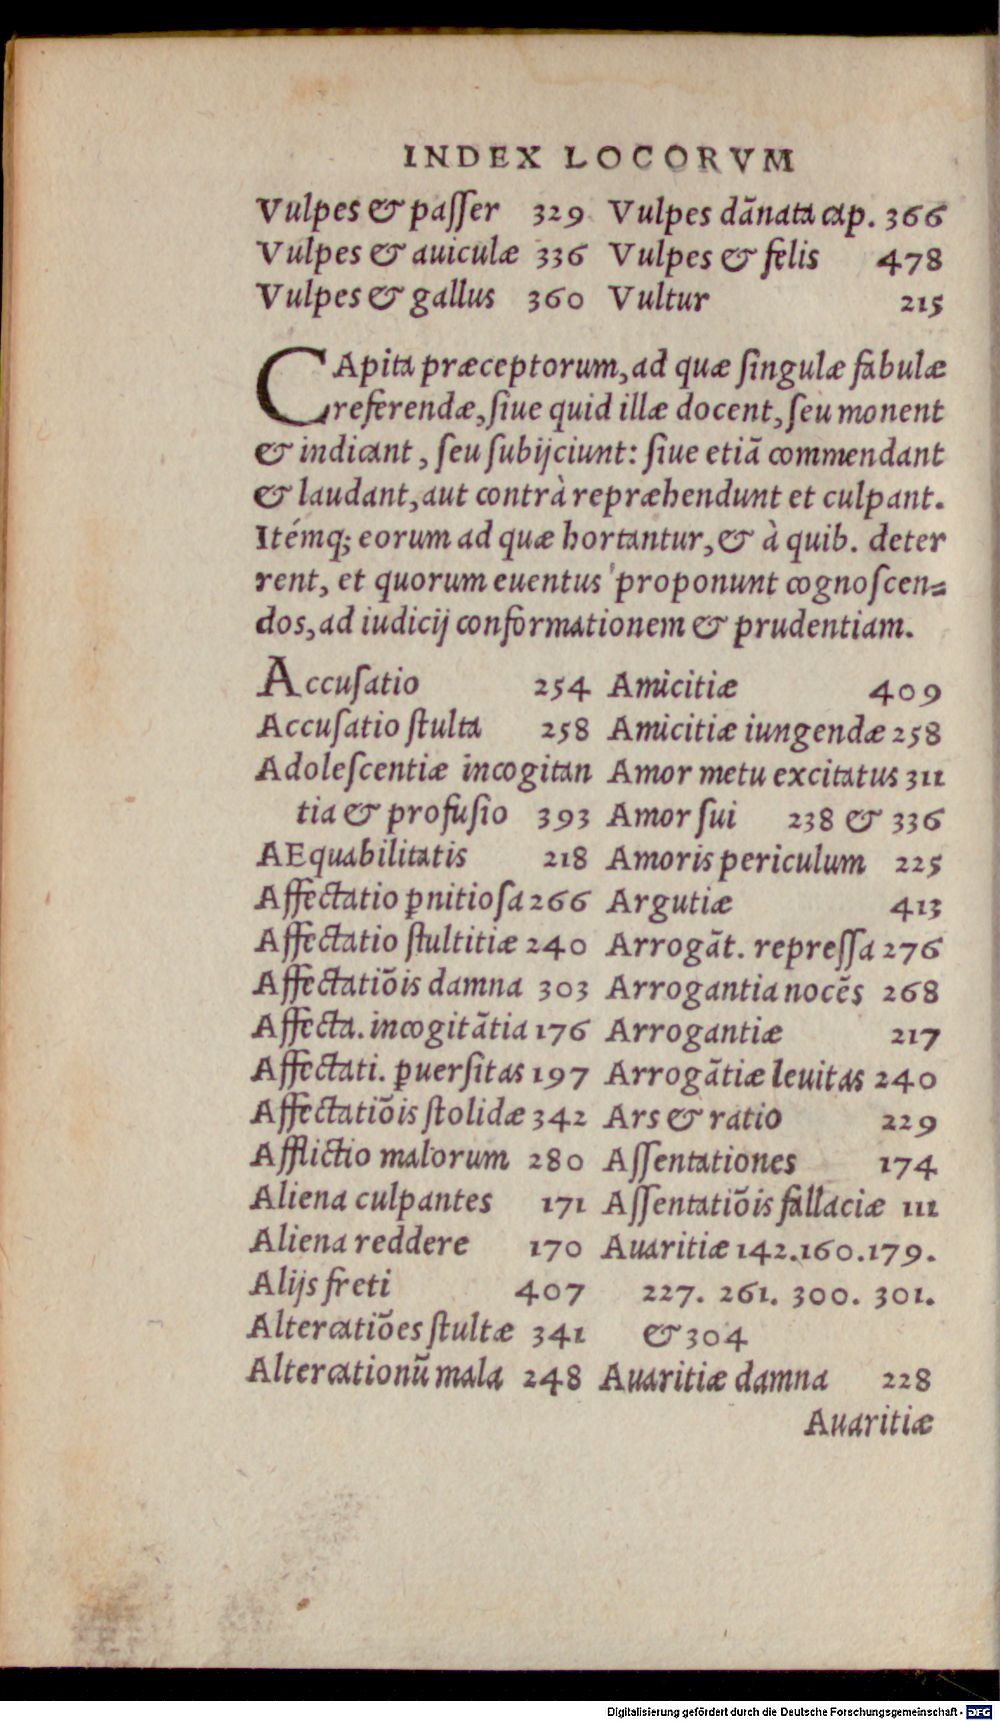 INDEX LOCORVM
Vulpes & paſſer 329
Vulpes & auiculæ 336
Vulpes & gallus 360
Vulpes dãnata cap. 366
Vulpes & felis 478
Vultur 215
CApita præceptorum, ad quæ ſingulæ fabulæ
referendæ, ſiue quid illæ docent, ſeu monent
& indicant, ſeu ſubijciunt: ſiue etiã commendant
& laudant, aut contrà repræhendunt et culpant.
Itémq; eorum ad quæ hortantur, & à quib. deter
rent, et quorum euentus proponunt cognoſcen=
dos, ad iudicij conformationem & prudentiam.
Accuſatio 254
Accuſatio ſtulta 258
Adoleſcentiæ incogitan
tia & profuſio 393
AEquabilitatis 218
Affectatio ꝑnitioſa 266
Affectatio ſtultitiæ 240
Affectatiõis damna 303
Affecta. incogitãtia 176
Affectati. ꝑuerſitas 197
Affectatiõis ſtolidæ 342
Afflictio malorum 280
Aliena culpantes 171
Aliena reddere 170
Alijs freti 407
Altercatiões ſtultæ 341
Altercationũ mala 248
Amicitiæ 409
Amicitiæ iungendæ 258
Amor metu excitatus 311
Amor ſui 238 & 336
Amoris periculum 225
Argutiæ 413
Arrogãt. repreſſa 276
Arrogantia nocẽs 268
Arrogantiæ 217
Arrogãtiæ leuitas 240
Ars & ratio 229
Aſſentationes 174
Aſſentatiõis fallaciæ 111
Auaritiæ 142.160.179.
227. 261. 300. 301.
& 304
Auaritiæ damna 228
Auaritiæ
Digitalisierung gefördert durch die Deutsche Forschungsgemeinschaft - DFG